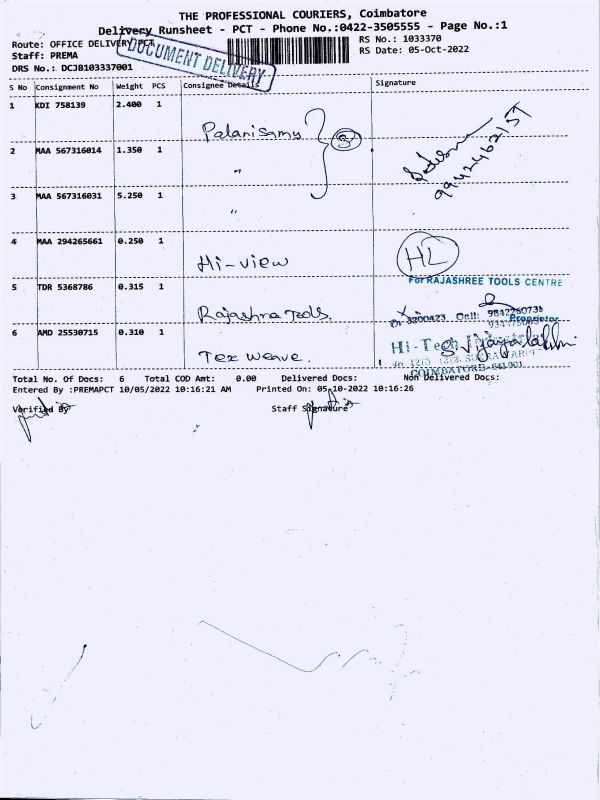 THE PROFESSIONAL COURIERS, Coimbatore
Delivery Runsheet - PCT - Phone No.:0422-3505555 - Page No.:1
Route: OFFICE DELIVERY PCT
RS No.: 1033370
Staff: PREMA
RS Date: 05-Oct-2022
DRS No.: DCJB103337001
DOCUMENT DELIVERY
S No Consignment No Weight PCS Consignee Details Signature
1 KDI 758139 2.400 1 Palanisamy 3
2 MAA 567316014 1.350 1 "
9942462157
3 MAA 567316031 5.250 1 "
4 MAA 294265661 0.250 1 Hi-view HL
For RAJASHREE TOOLS CENTRE
5 TDR 5368786 0.315 1 Rajashree Tools.
Proprietor
6 AMD 25530715 0.310 1 Tex weave.
Hi-Tech
COIMBATORE-641001
Total No. Of Docs: 6 Total COD Amt: 0.00 Delivered Docs: Non Delivered Docs:
Entered By :PREMAPCT 10/05/2022 10:16:21 AM Printed On: 05-10-2022 10:16:26
Verified By Staff Signature